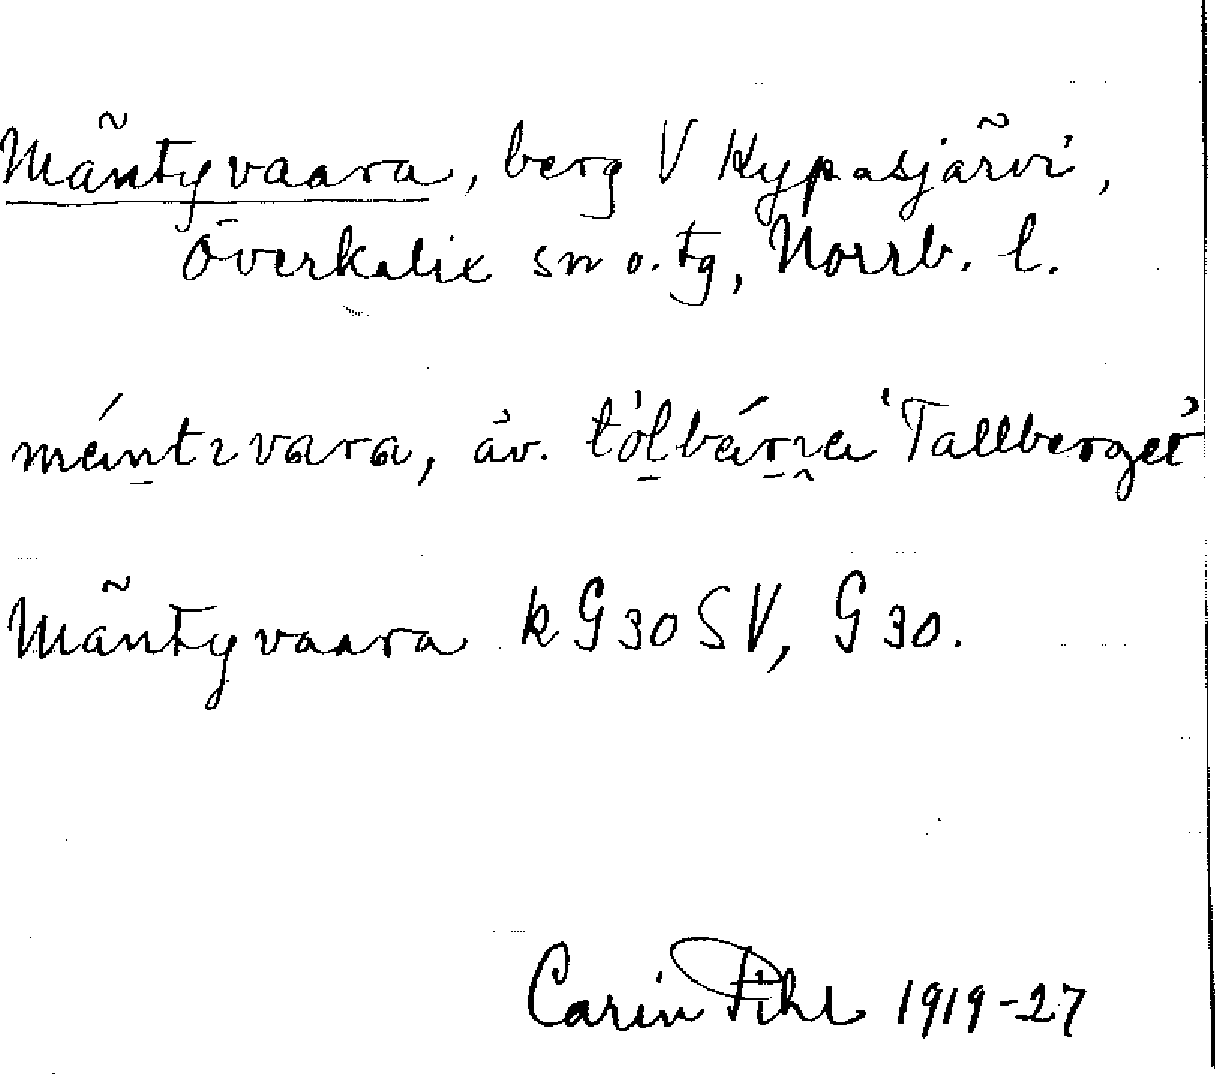 Mäntyvaara, berg V Hypasjärvi,
Överkalix sn o. tg, Norrb. l.
mántɩvara, äv. tȯlbárɩa 'Tallberget'
Mäntyvaara k G 30 SV, G 30.
Carin Pihl 1919-27